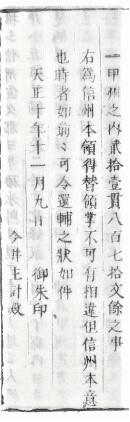 一甲州之内貳拾壹貫八百七拾文餘之事
右為信州本領得替領掌不可有相違但信州本意
也時者如前々可令還輔之狀如件
天正十年十一月九日　御朱印
今井主計殿